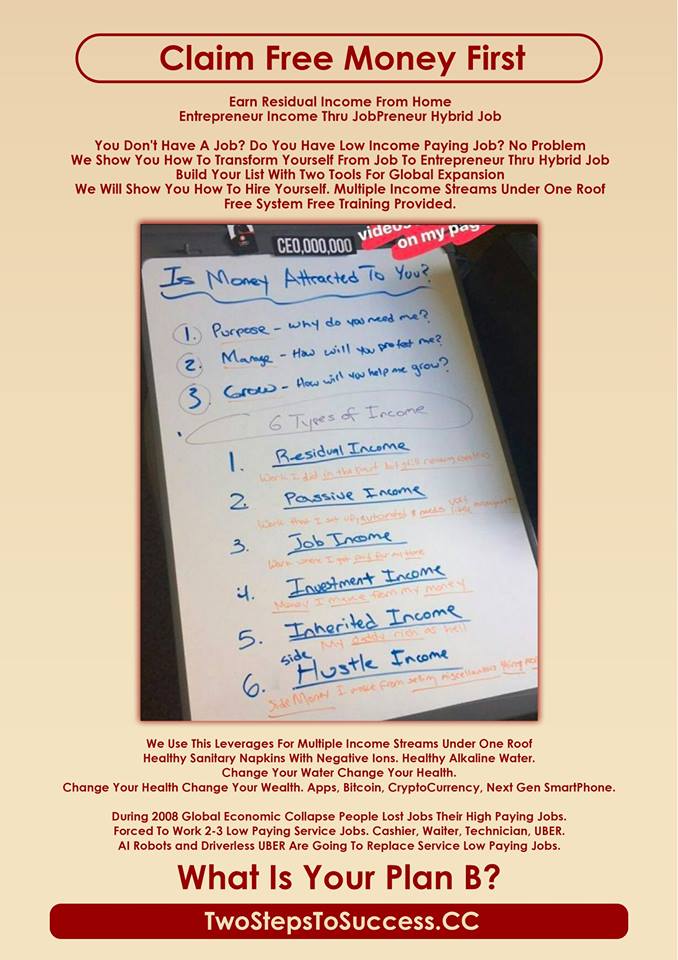 Claim Free Money First
Earn Residual Income From Home
Entrepreneur Income Thru JobPreneur Hybrid Job
You Don't Have A Job? Do You Have Low Income Paying Job? No Problem
We Show You How To Transform Yourself From Job To Entrepreneur Thru Hybrid Job
Build Your List With Two Tools For Global Expansion
We Will Show You How To Hire Yourself. Multiple Income Streams Under One Roof
Free System Free Training Provided.
CEO,000,000
videos
on my page
Is Money Attracted To You?
1. Purpose - Why do you need me?
2. Manage - How will you protect me?
3 Grow - How will you help me grow?
6 Types of Income
1. Residual Income
Work I did in the past but still receiving
2. Passive Income
Work that I set up, automated & needs very little
3. Job Income
Work where I get paid for my time
4. Investment Income
Money I make from my money
5. Inherited Income
My daddy rich as hell
6. side Hustle Income
Side Money I make from selling miscellaneous
We Use This Leverages For Multiple Income Streams Under One Roof
Healthy Sanitary Napkins With Negative Ions. Healthy Alkaline Water.
Change Your Water Change Your Health.
Change Your Health Change Your Wealth. Apps, Bitcoin, CryptoCurrency, Next Gen SmartPhone.
During 2008 Global Economic Collapse People Lost Jobs Their High Paying Jobs.
Forced To Work 2-3 Low Paying Service Jobs. Cashier, Waiter, Technician, UBER.
AI Robots and Driverless UBER Are Going To Replace Service Low Paying Jobs.
What Is Your Plan B?
TwoStepsToSuccess.CC